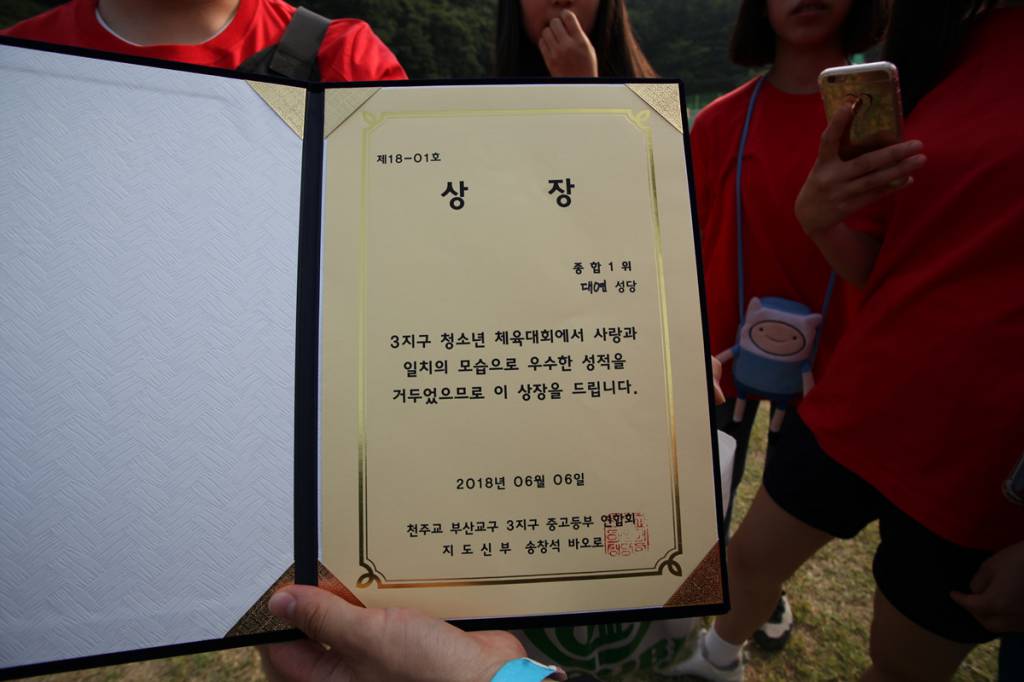 제18-01호
상 장
종합1위
대연 성당
3지구 청소년 체육대회에서 사랑과
일치의 모습으로 우수한 성적을
거두었으므로 이 상장을 드립니다.
2018년 06월 06일
천주교 부산교구 3지구 중고등부 연합회
지도신부 송창석 바오로